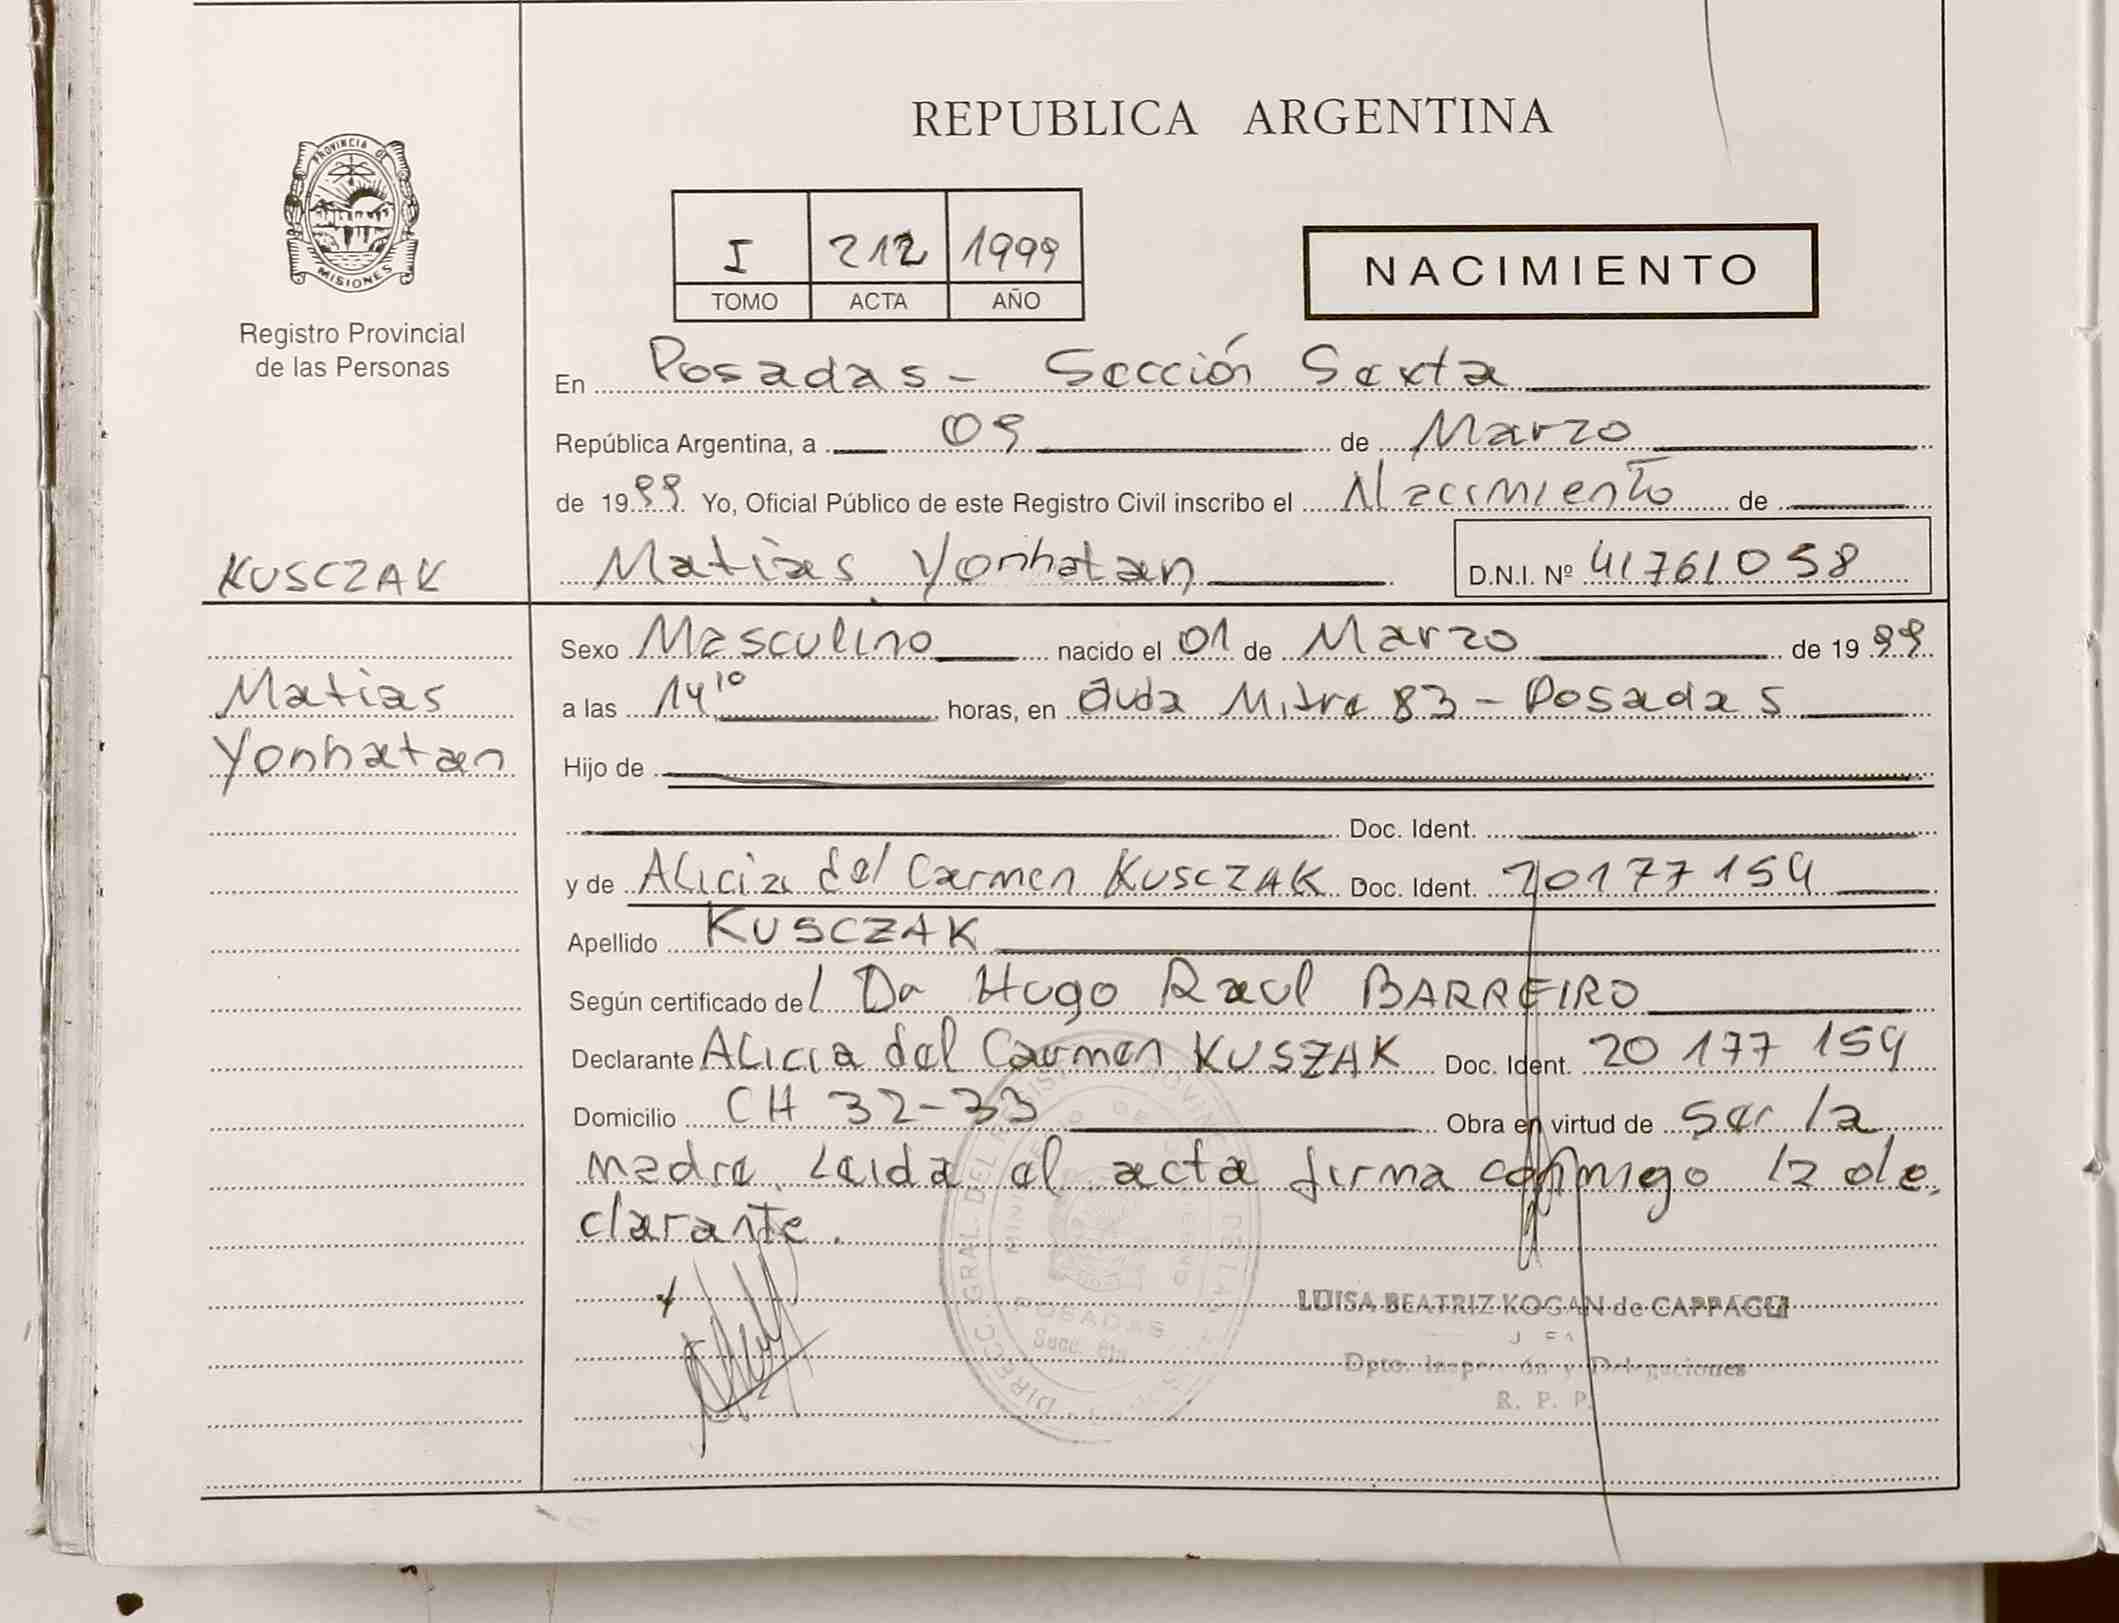 REPUBLICA ARGENTINA
PROVINCIA DE
MISIONES
Registro Provincial
de las Personas
I 212 1999
TOMO ACTA AÑO
NACIMIENTO
En Posadas - Sección Sexta
República Argentina, a 09 de Marzo
de 1999 Yo, Oficial Público de este Registro Civil inscribo el Nacimiento de
KUSCZAK
Matias Yonhatan D.N.I. Nº 41761058
Sexo Masculino nacido el 01 de Marzo de 1999
Matias
a las 14,10 horas, en Avda Mitre 83 - Posadas
Yonhatan
Hijo de
Doc. Ident.
y de Alicia del Carmen KUSCZAK Doc. Ident. 20177154
Apellido KUSCZAK
Según certificado del Dr Hugo Raul BARREIRO
Declarante Alicia del Carmen KUSZAK Doc. Ident. 20 177 154
Domicilio CH 32-33 Obra en virtud de ser la
madre. Leida el acta firma conmigo la de-
clarante.
DIREC. GRAL. DEL
POSADAS
LUISA BEATRIZ KOGAN de CAPPAGLI
JEFA
Dpto. Inspección y Delegaciones
R. P. P.